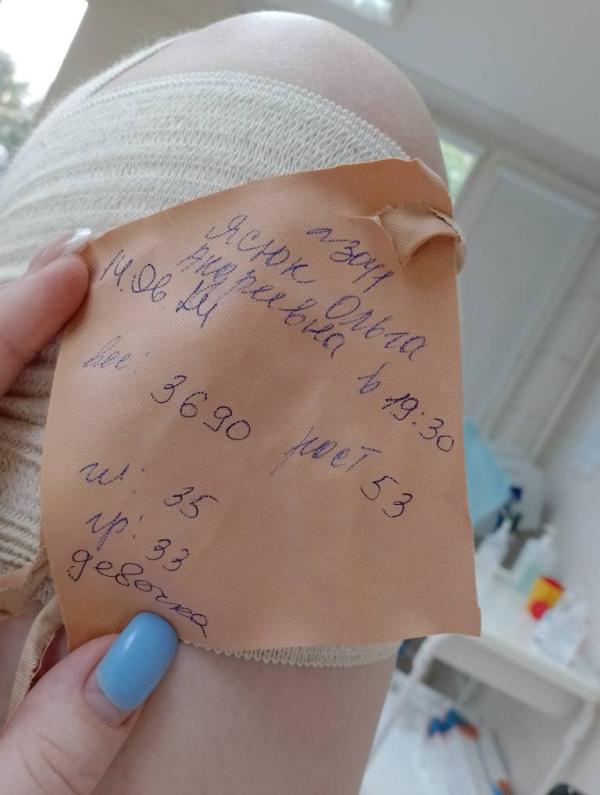 Ясюк Ольга
Андреевна
14.06. в 19:30
вес: 3690 рост 53
гр: 33
девочка